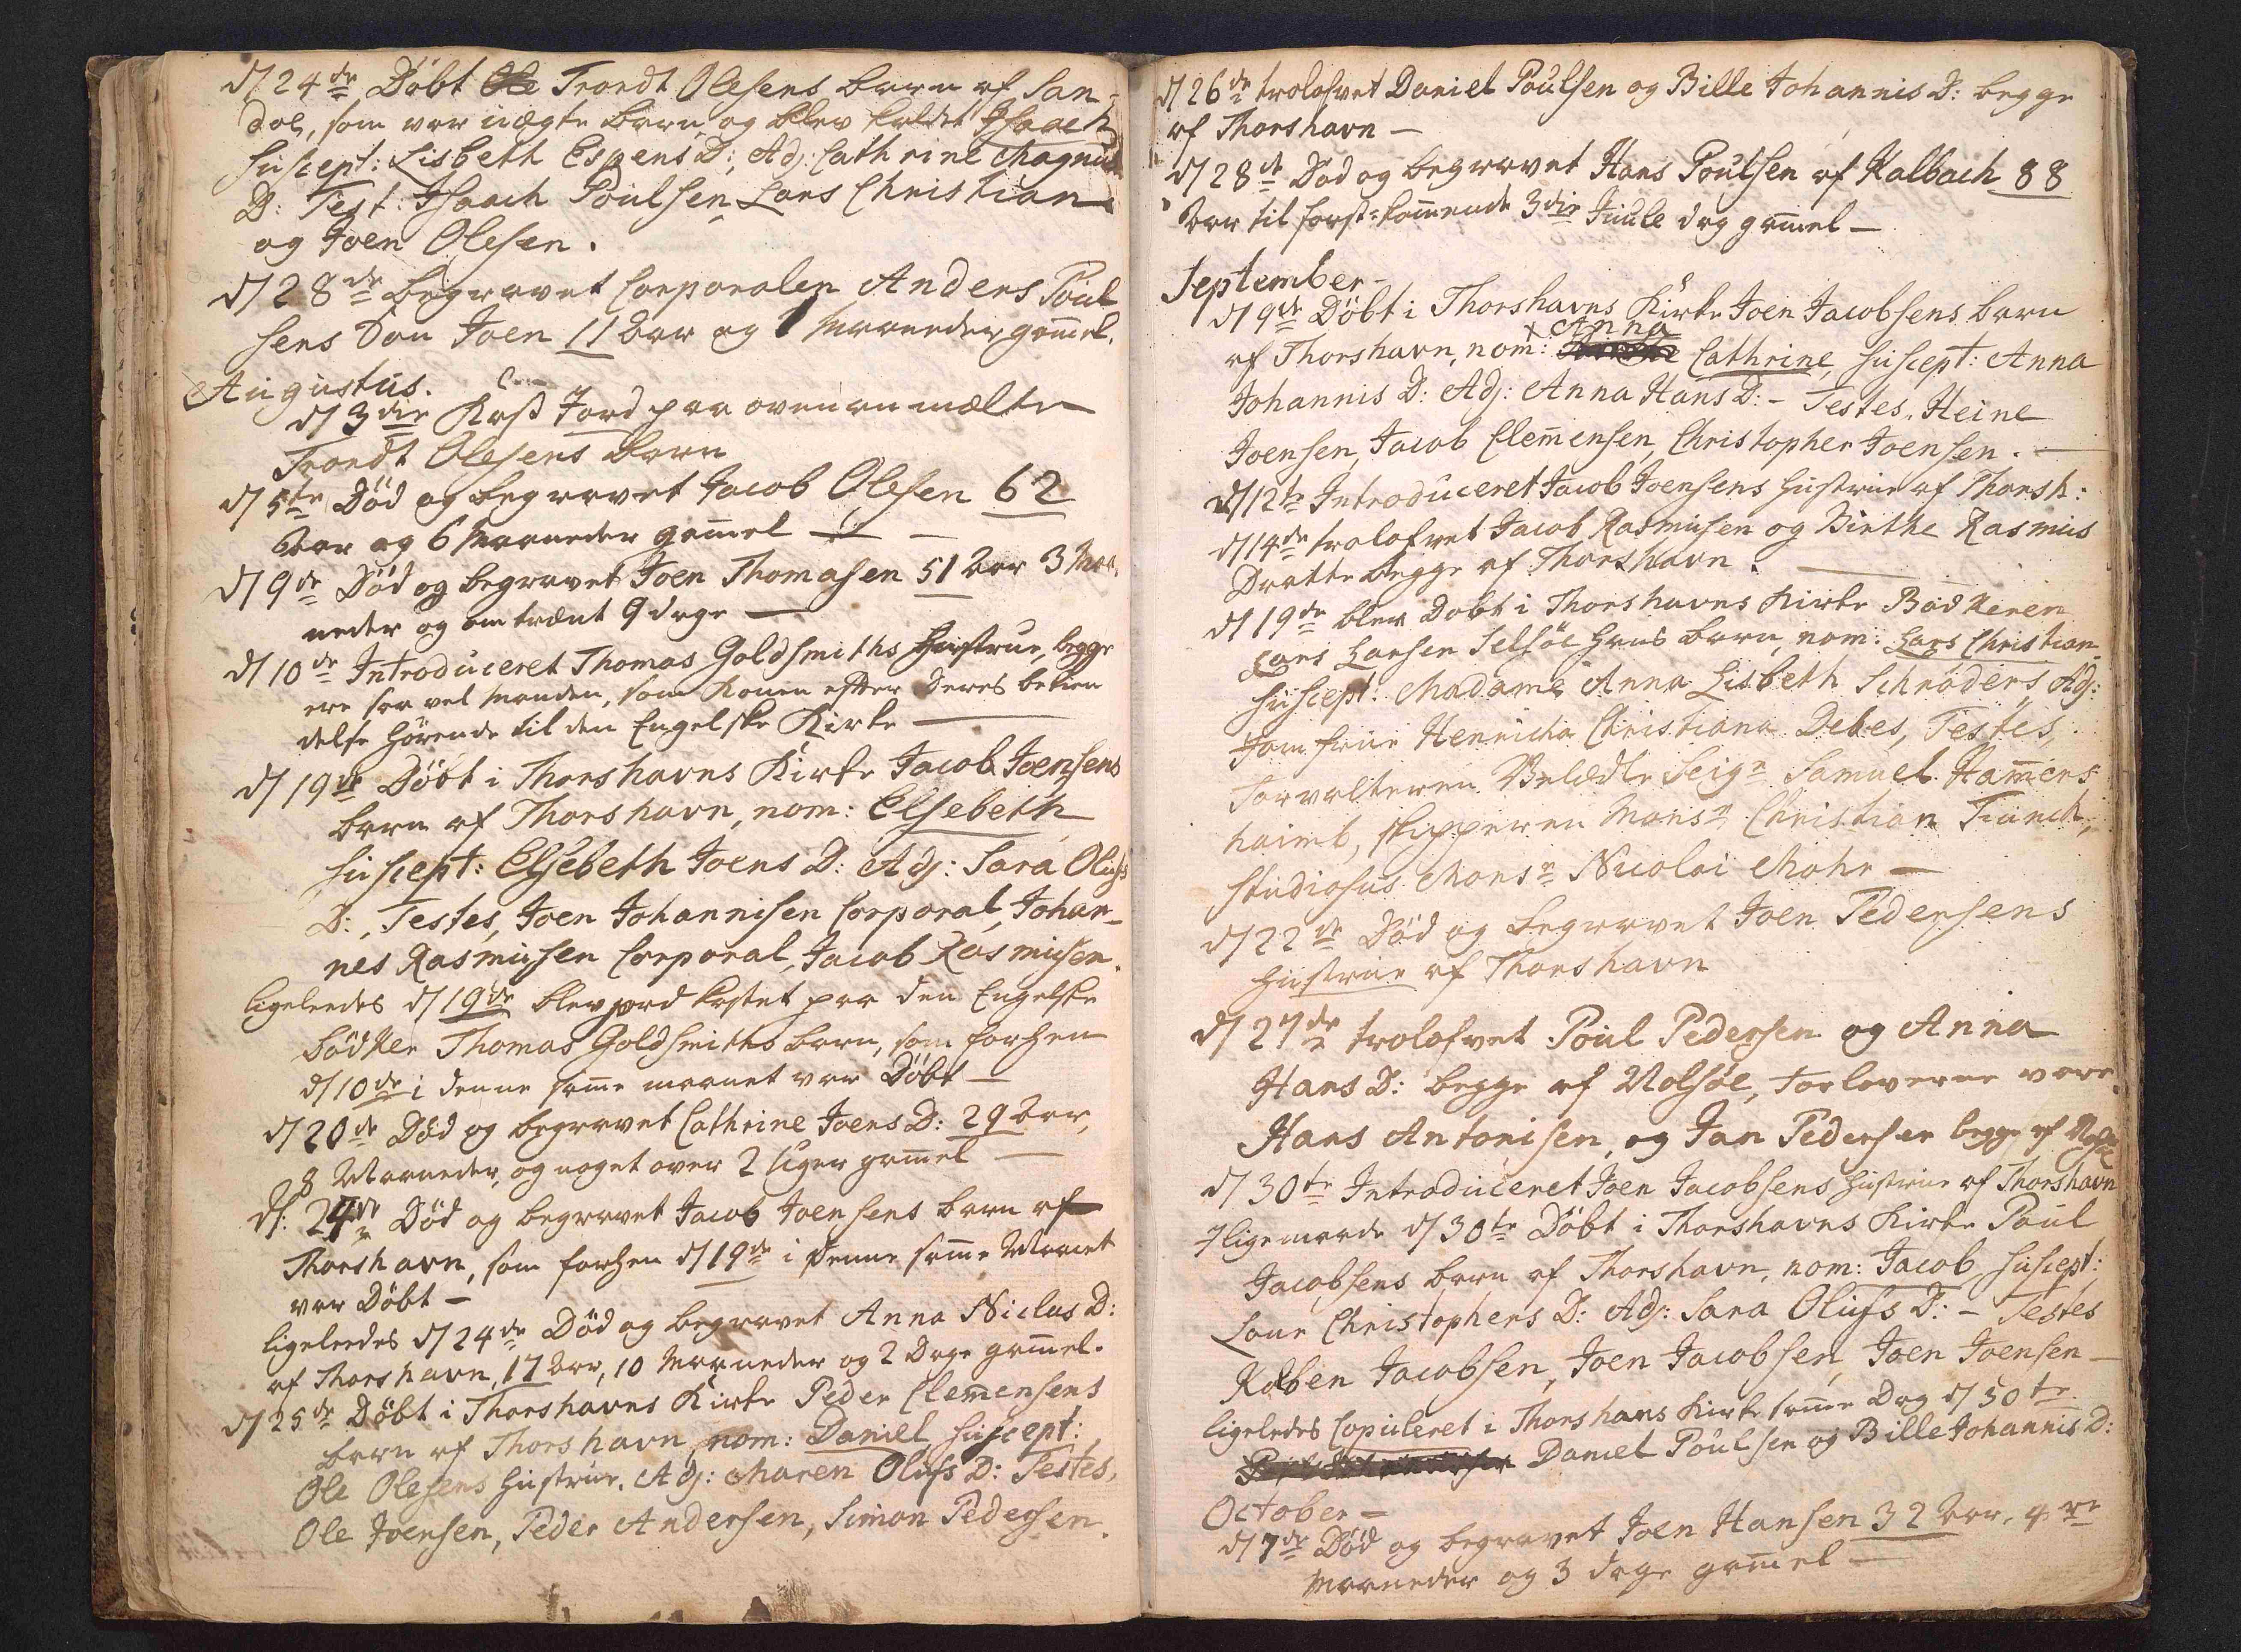 d/ 24de Döbt Ole Trondt Olesens barn af San-
doe, som var uægte barn og blev kaldet Isaach
suscept: Lisbeth Espens D:, Adj: Cathrine Magnus
D: Test: Isaach Poulsen, Lars Christian
og Joen Olesen.
d/ 28de begravet Corporalen Anders Poul
sens Sön Joen 11 Aar og 1 Maaneder gam̄el.
Augustus.
d/ 3die Kast Jord paa ovenanmælte
Trondt Olesens barn
d/ 5te Död og begravet Jacob Olesen 62
Aar og 6 Maaneder gam̄el —
d/ 9de Död og begravet Joen Thomasen 51 Aar 3 Maa
neder og omtrent 9 dage —
d/ 10de Introduceret Thomas Goldsmiths Hustrue, begge
ere saa vel Manden, som Konen efter Deres bekien
delse hörende til den Engelske Kirke —
d/ 19de Döbt i Thorshavns Kirke Jacob Joensens
barn af Thorshavn, nom: Elsebeth
suscept: Elsebeth Joens D: Adj: Sara Olufs
D:, Testes, Joen Johannisen Corporal, Johan-
nes Rasmusen Corporal, Jacob Rasmusen.
ligeleedes d/ 19de blev jord kastet paa den Engelske
bödker Thomas Goldsmiths barn, som forhen
d/ 10de i denne sam̄e maanet var Döbt —
d/ 20de Död og begravet Cathrine Joens D: 29 Aar,
8 Maaneder, og noget over 2 Uger gam̄el —
d/: 24de Död og begravet Jacob Joensens barn af
Thorshavn, som forhen d/ 19de i denne sam̄e Maanet
var Döbt —
ligeleedes d/ 24de Död og begravet Anna Niclas D:
af Thorshavn, 17 Aar, 10 Maaneder og 2 Dage gam̄el.
d/ 25de Döbt i Thorshavns Kirke Peder Clemensens
barn af Thorshavn, nom: Daniel, suscept:
Ole Olesens Hustrue. Adj: Maren Olufs D: Testes,
Ole Joensen, Peder Andersen, Simon Pedersen.
d/ 26de trolofvet Daniel Poulsen og Bille Johannis D: begge
af Thorshavn —
d/ 28de Död og begravet Hans Poulsen af Kalbach 88
Aar til först-kom̄ende 3die Juule dag gam̄el —
September —
d/ 9de Döbt i Thorshavns Kirke Joen Jacobsens barn
Anna
af Thorshavn, nom: Cathrine, suscept: Anna
Johannis D: Adj: Anna Hans D: — Testes, Heine
Joensen, Jacob Clem̄ensen, Christopher Joensen. —
d/ 12te Introduceret Jacob Joensens Hustrue af Thorsh:
d/ 14de trolofvet Jacob Rasmusen og Birthe Rasmus
Datter begge af Thorshavn. —
d/ 19de blev Döbt i Thorshavns Kirke Bödkeren
Lars Larsen Selsöe hans barn, nom: Lars Christian
suscept: Madame Anna Lisbeth Schröders, Adj:
Jomfrue Henricha Christiana Debes, Testes,
Forvalteren Velædle Seigr Samuel Ham̄ers-
haimb, skipperen Monsr Christian Funch,
studiosus Monsr Nicolai Mohr —
d/ 22de Död og begravet Joen Pedersens
Hustrue af Thorshavn
d/ 27de trolofvet Poul Pedersen og Anna
Hans D: begge af Nolsöe, Forloverne vare
Hans Antonisen, og Jan Pedersen begge af Nolsöe
d/ 30te Introduceret Joen Jacobsens Hustrue af Thorshavn
Jligemaade d/ 30te Döbt i Thorshavns Kirke Poul
Jacobsens barn af Thorshavn, nom: Jacob, suscept:
Christophers D: Adj: Sara Olufs D: — Testes
Jacobsen, Joen Jacobsen, Joen Joensen —
ligeledes Copuleret i Thorshavns Kirke sam̄e Dag d/ 30te
Daniel Poulsen og Bille Johannis D:
October —
d/ 7de Död og begravet Joen Hansen 32 Aar, 4re
Maaneder og 3 dage gam̄el —